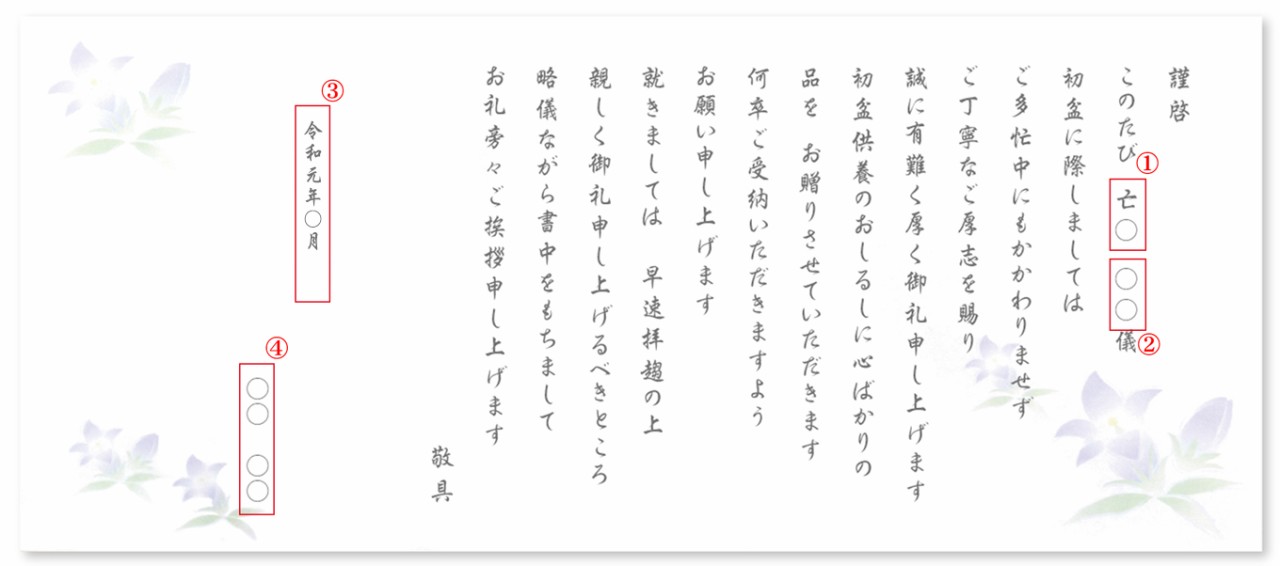 謹啓
このたび 亡○ ○○儀
初盆に際しましては
ご多忙中にもかかわりませず
ご丁寧なご厚志を賜り
誠に有難く厚く御礼申し上げます
初盆供養のおしるしに心ばかりの
品を お贈りさせていただきます
何卒ご受納いただきますよう
お願い申し上げます
就きましては 早速拝趨の上
親しく御礼申し上げるべきところ
略儀ながら書中をもちまして
お礼旁々ご挨拶申し上げます
敬具
令和元年○月
○○ ○○
①
②
③
④